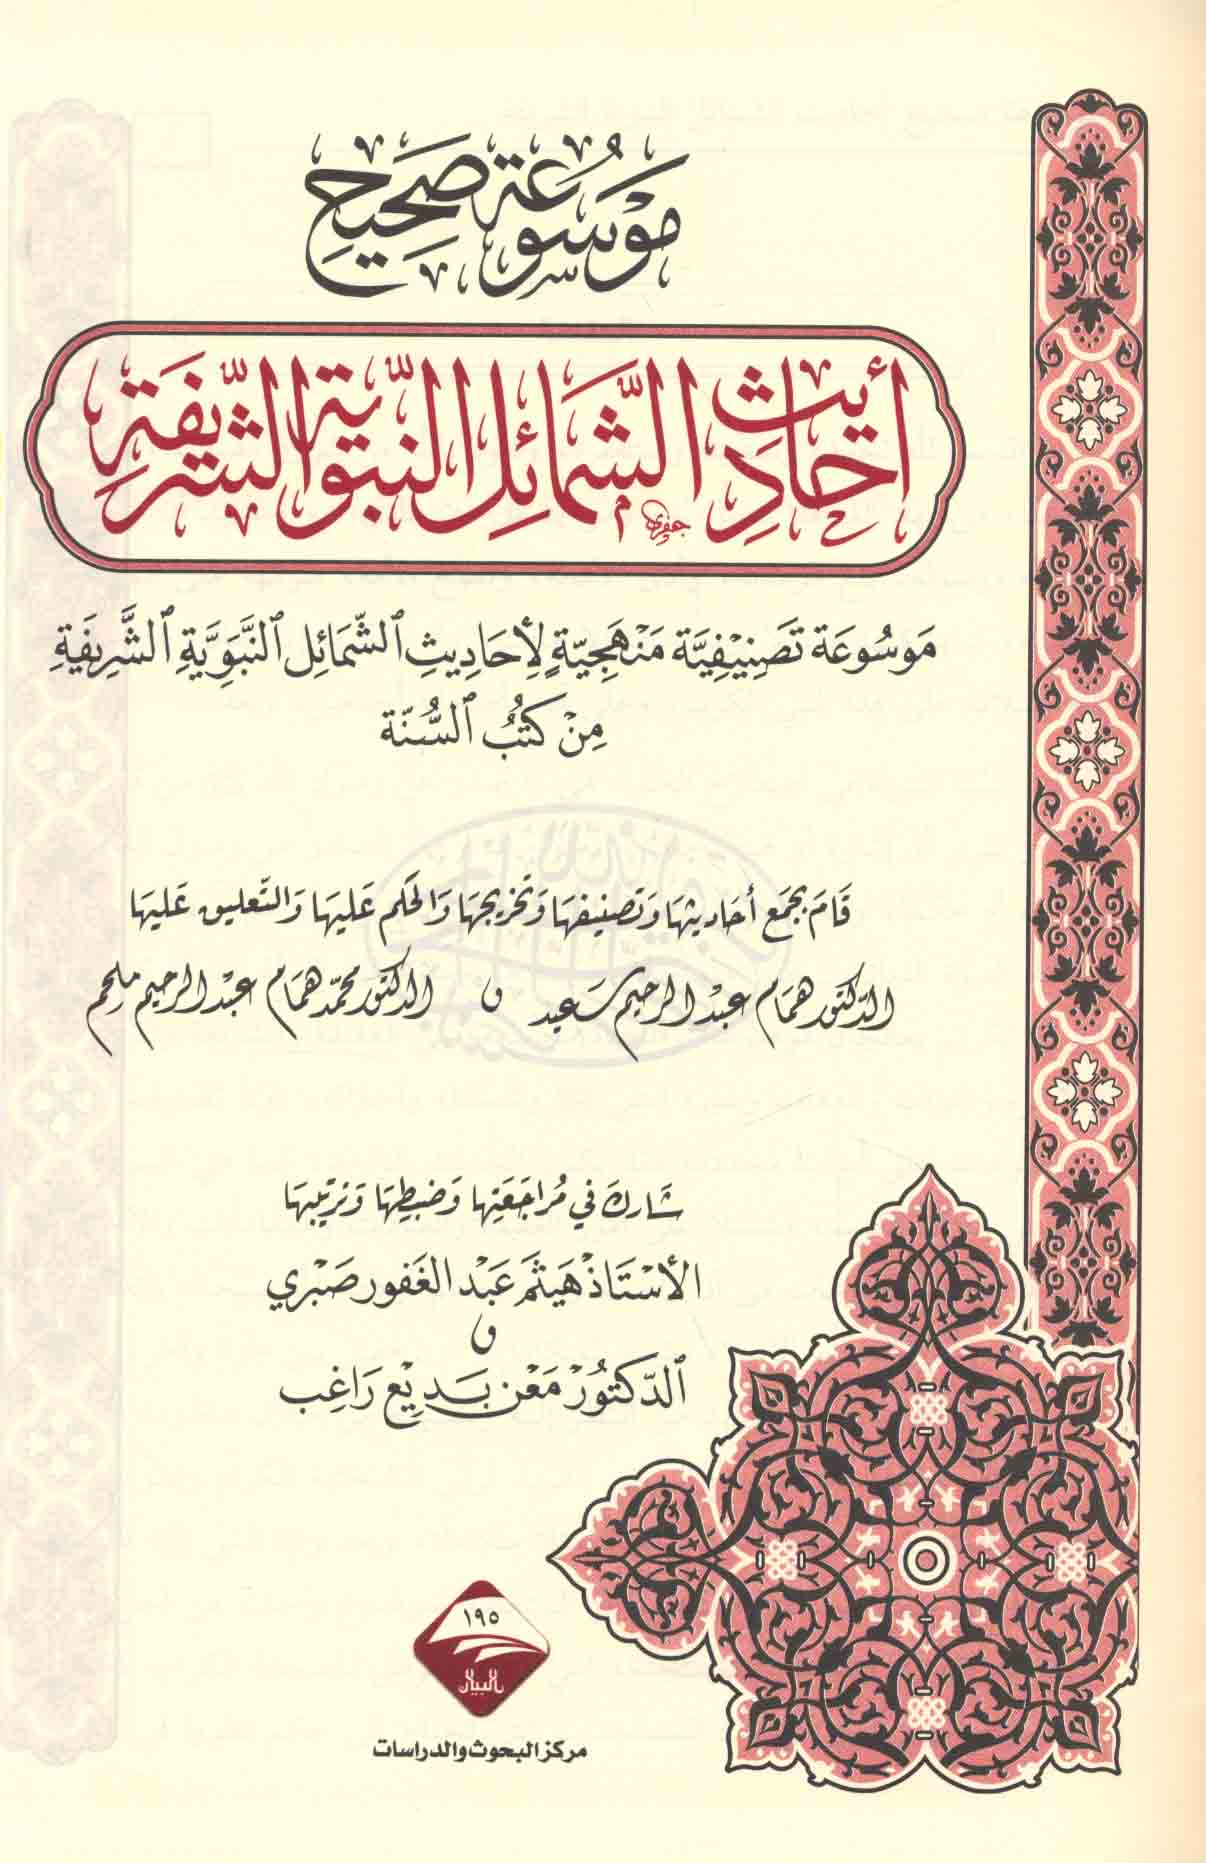 مَوْسُوعَة صَحِيح
أحاديث الشَّمائل النَّبويَّة الشَّريفة
جفري
مَوْسُوعَة تَصْنِيْفِيَّة مَنْهَجِيَّةٍ لِأَحَادِيثِ الشَّمَائل النَّبَوِيَّةِ الشَّرِيفَةِ
مِنْ كُتُبُ السُّنّة
قَامَ بجَمع أحَاديثها وَتصنيفهَا وَتخريجهَا وَالحكم عَليهَا وَالتّعليق عَليهَا
الدكتور همام عبد الرحيم سَعيد و الدكتور محمّد همام عبد الرحيم ملحم
شَارك في مُراجَعَتِها وَضبطِهَا وَترتيبهَا
الأُسْتَاذ هَيثَم عَبْد الغَفور صَبْري
و
الدّكتُورْ مَعْن بَديْع رَاغِب
١٩٥
البيان
مركز البحوث والدراسات